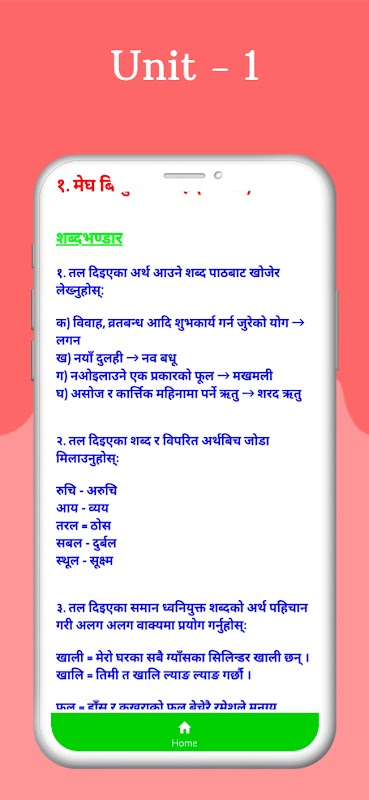 Unit - 1
१. मेघ
शब्दभण्डार
१. तल दिइएका अर्थ आउने शब्द पाठबाट खोजेर
लेख्नुहोस्:
क) विवाह, व्रतबन्ध आदि शुभकार्य गर्न जुरेको योग →
लगन
ख) नयाँ दुलही → नव बधू
ग) नओइलाउने एक प्रकारको फूल → मखमली
घ) असोज र कार्त्तिक महिनामा पर्ने ऋतु → शरद ऋतु
२. तल दिइएका शब्द र विपरित अर्थबिच जोडा
मिलाउनुहोस्:
रुचि - अरुचि
आय - व्यय
तरल = ठोस
सबल - दुर्बल
स्थूल - सूक्ष्म
३. तल दिइएका समान ध्वनियुक्त शब्दको अर्थ पहिचान
गरी अलग अलग वाक्यमा प्रयोग गर्नुहोस्:
खाली = मेरो घरका सबै ग्याँसका सिलिन्डर खाली छन् ।
खालि = तिमी त खालि ल्याङ ल्याङ गर्छौ ।
फुल = हाँस र कुखुराको फुल बेचेरै रमेशले मनग्य
Home